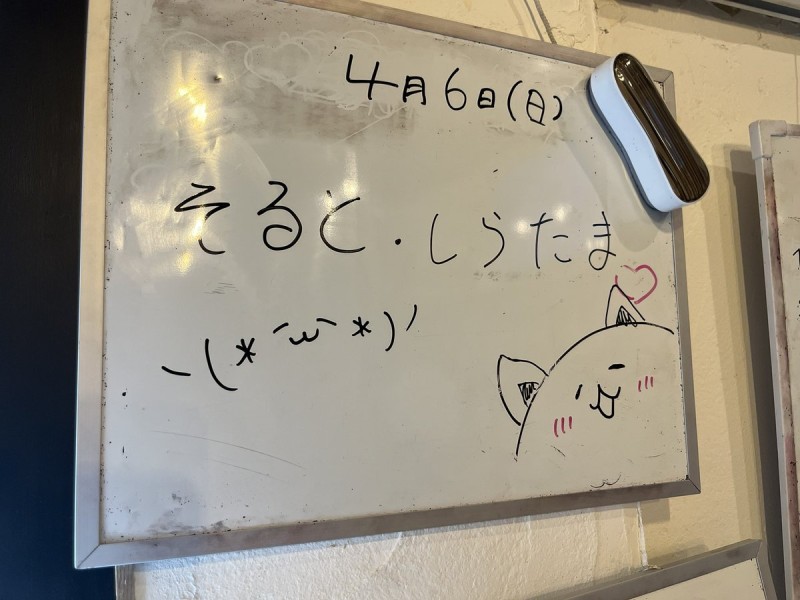 4月6日(日)
そると・しらたま
-(*´ω`*)ﾉ